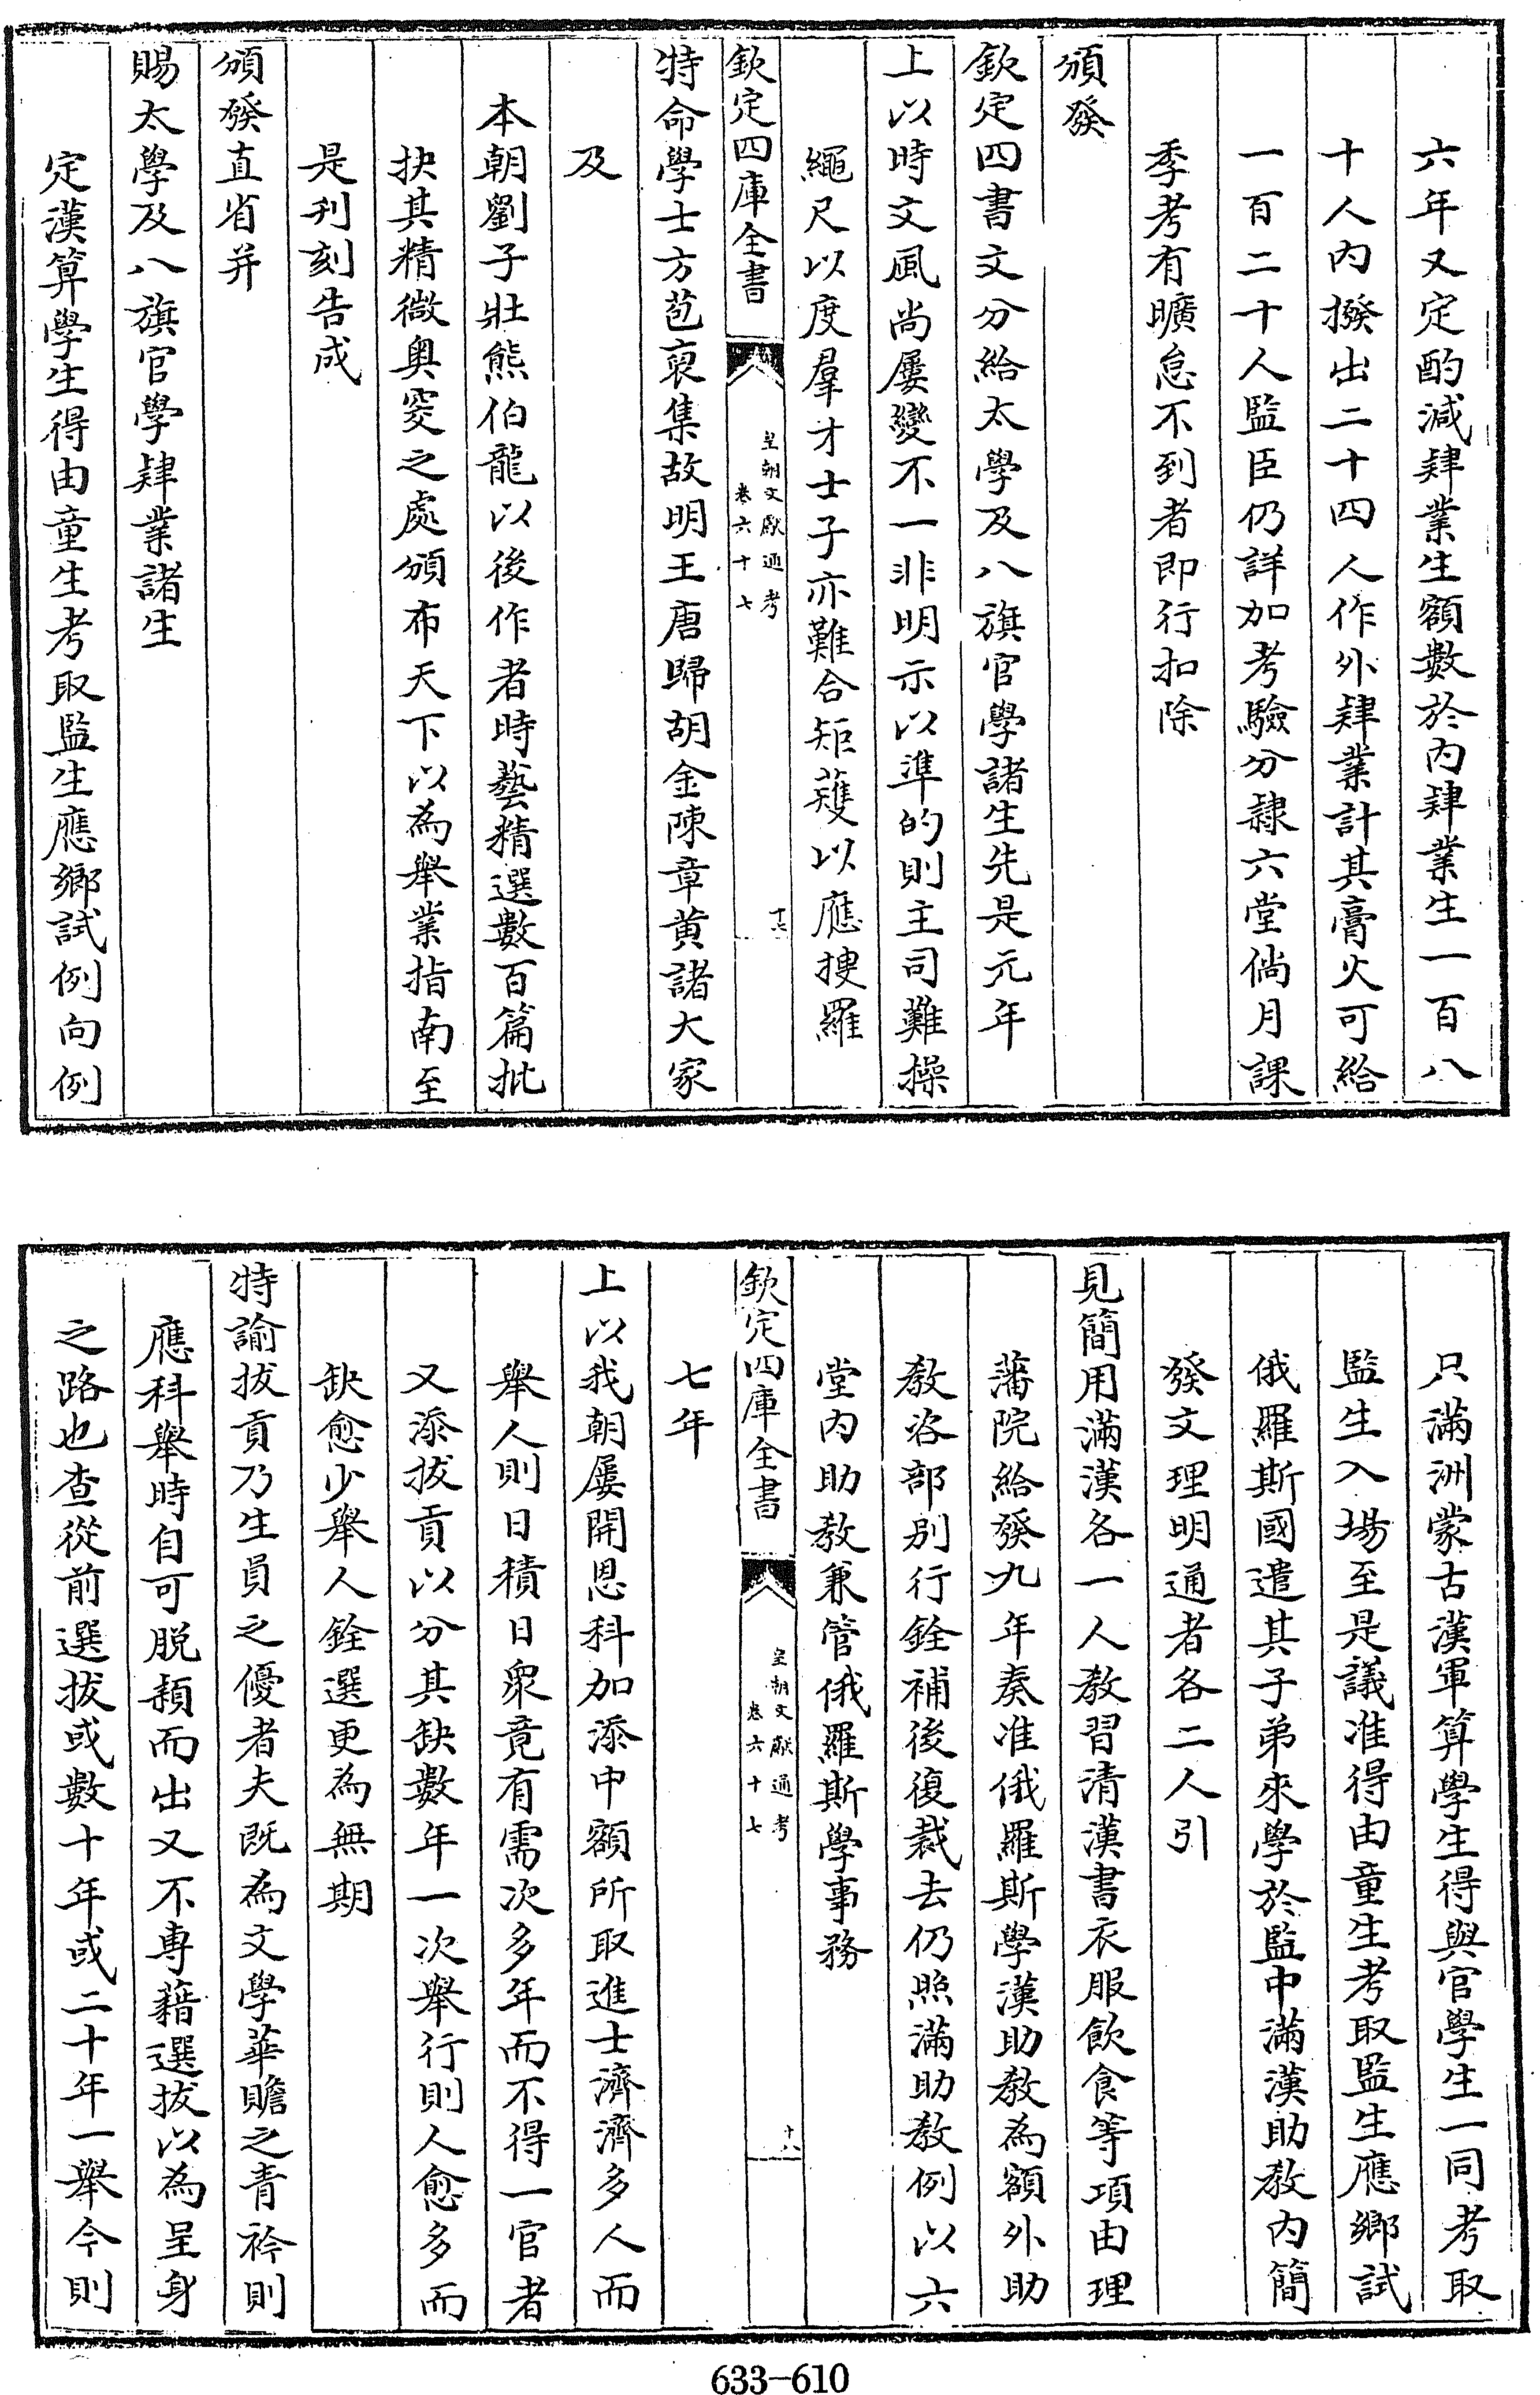 六年又定酌減肄業生額數於內肄業生一百八
十人內撥出二十四人作外肄業計其膏火可給
一百二十人監臣仍詳加考驗分隸六堂倘月課
季考有曠怠不到者即行扣除
頒發
欽定四書文分給太學及八旗官學諸生先是元年
上以時文風尚屢變不一非明示以準的則主司難操
繩尺以度羣才士子亦難合矩矱以應搜羅
欽定四庫全書
皇朝文獻通考
卷六十七
十七
特命學士方苞裒集故明王唐歸胡金陳章黃諸大家
及
本朝劉子壯熊伯龍以後作者時藝精選數百篇批
抉其精微奧窔之處頒布天下以為舉業指南至
是刋刻告成
頒發直省并
賜太學及八旗官學肄業諸生
定漢算學生得由童生考取監生應鄉試例向例
只滿洲蒙古漢軍算學生得與官學生一同考取
監生入場至是議准得由童生考取監生應鄉試
俄羅斯國遣其子弟來學於監中滿漢助教內簡
發文理明通者各二人引
見簡用滿漢各一人教習清漢書衣服飲食等項由理
藩院給發九年奏准俄羅斯學漢助教為額外助
教咨部別行銓補後復裁去仍照滿助教例以六
堂內助教兼管俄羅斯學事務
欽定四庫全書
皇朝文獻通考
卷六十七
十八
七年
上以我朝屢開恩科加添中額所取進士濟濟多人而
舉人則日積日衆竟有需次多年而不得一官者
又添拔貢以分其缺數年一次舉行則人愈多而
缺愈少舉人銓選更為無期
特諭拔貢乃生員之優者夫既為文學華贍之青衿則
應科舉時自可脫穎而出又不專藉選拔以為呈身
之路也查從前選拔或數十年或二十年一舉今則
633-610